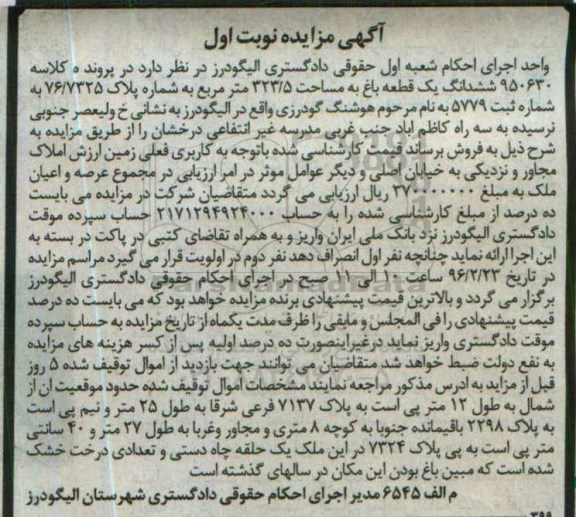 آگهی مزایده نوبت اول
واحد اجرای احکام شعبه اول حقوقی دادگستری الیگودرز در نظر دارد در پرونده کلاسه
۹۵۰۶۳۰ ششدانگ یک قطعه باغ به مساحت ۳۲۳/۵ متر مربع به شماره پلاک ۷۶/۷۳۲۵ به
شماره ثبت ۵۷۷۹ به نام مرحوم هوشنگ گودرزی واقع در الیگودرز به نشانی خ ولیعصر جنوبی
نرسیده به سه راه کاظم اباد جنب غربی مدرسه غیر انتفاعی درخشان را از طریق مزایده به
شرح ذیل به فروش برساند قیمت کارشناسی شده باتوجه به کاربری فعلی زمین ارزش املاک
مجاور و نزدیکی به خیابان اصلی و دیگر عوامل موثر در امر ارزیابی در مجموع عرصه و اعیان
ملک به مبلغ ۲۷۰۰۰۰۰۰۰۰ ریال ارزیابی می گردد متقاضیان شرکت در مزایده می بایست
ده درصد از مبلغ کارشناسی شده را به حساب ۲۱۷۱۲۹۴۹۲۴۰۰۰ حساب سپرده موقت
دادگستری الیگودرز نزد بانک ملی ایران واریز و به همراه تقاضای کتبی در پاکت در بسته به
این اجرا ارائه نماید چنانچه نفر اول انصراف دهد نفر دوم در اولویت قرار می گیرد مراسم مزایده
در تاریخ ۹۶/۲/۲۳ ساعت ۱۰ الی ۱۱ صبح در اجرای احکام حقوقی دادگستری الیگودرز
برگزار می گردد و بالاترین قیمت پیشنهادی برنده مزایده خواهد بود که می بایست ده درصد
قیمت پیشنهادی را فی المجلس و مابقی را ظرف مدت یکماه از تاریخ مزایده به حساب سپرده
موقت دادگستری واریز نماید درغیراینصورت ده درصد اولیه پس از کسر هزینه های مزایده
به نفع دولت ضبط خواهد شد متقاضیان می توانند جهت بازدید از اموال توقیف شده ۵ روز
قبل از مزاید به ادرس مذکور مراجعه نمایند مشخصات اموال توقیف شده حدود موقعیت ان از
شمال به طول ۱۲ متر پی است به پلاک ۷۱۳۷ فرعی شرقا به طول ۲۵ متر و نیم پی است
به پلاک ۲۲۹۸ باقیمانده جنوبا به کوچه ۸ متری و مجاور وغربا به طول ۲۷ متر و ۴۰ سانتی
متر پی است به پی پلاک ۷۳۲۴ در این ملک یک حلقه چاه دستی و تعدادی درخت خشک
شده است که مبین باغ بودن این مکان در سالهای گذشته است
م الف ۶۵۴۵ مدیر اجرای احکام حقوقی دادگستری شهرستان الیگودرز